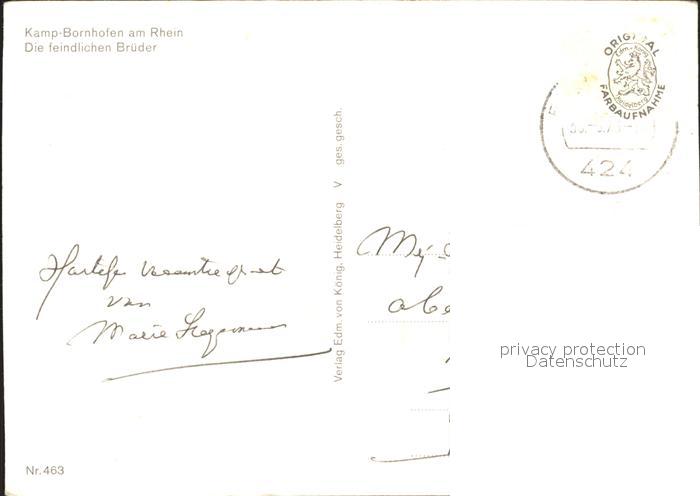 Kamp-Bornhofen am Rhein
Die feindlichen Brüder
ORIGINAL
Edm. von König
Heidelberg
FARBAUFNAHME
424
Verlag Edm. von König, Heidelberg V ges. gesch.
Hartelijke vacantiegroet
van
Marie
Mej
abe
privacy protection
Datenschutz
Nr. 463